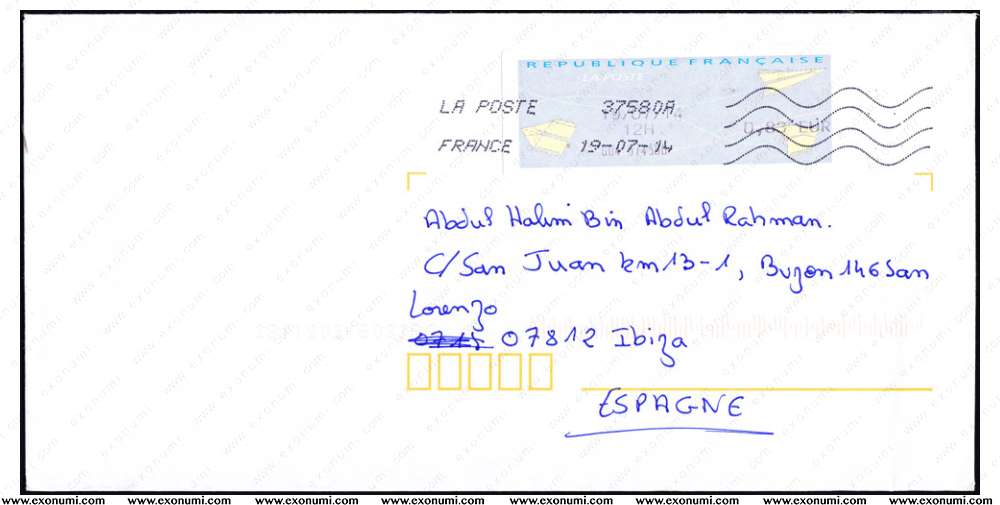 REPUBLIQUE FRANÇAISE
LA POSTE
LA POSTE 37580A
12H
0,83 EUR
FRANCE 19-07-14
Abdul Halim Bin Abdul Rahman.
C/San Juan km13-1, Buzon 146 San
Lorenzo
07812 Ibiza
ESPAGNE
www.exonumi.com www.exonumi.com www.exonumi.com www.exonumi.com www.exonumi.com www.exonumi.com www.exonumi.com www.exonumi.com